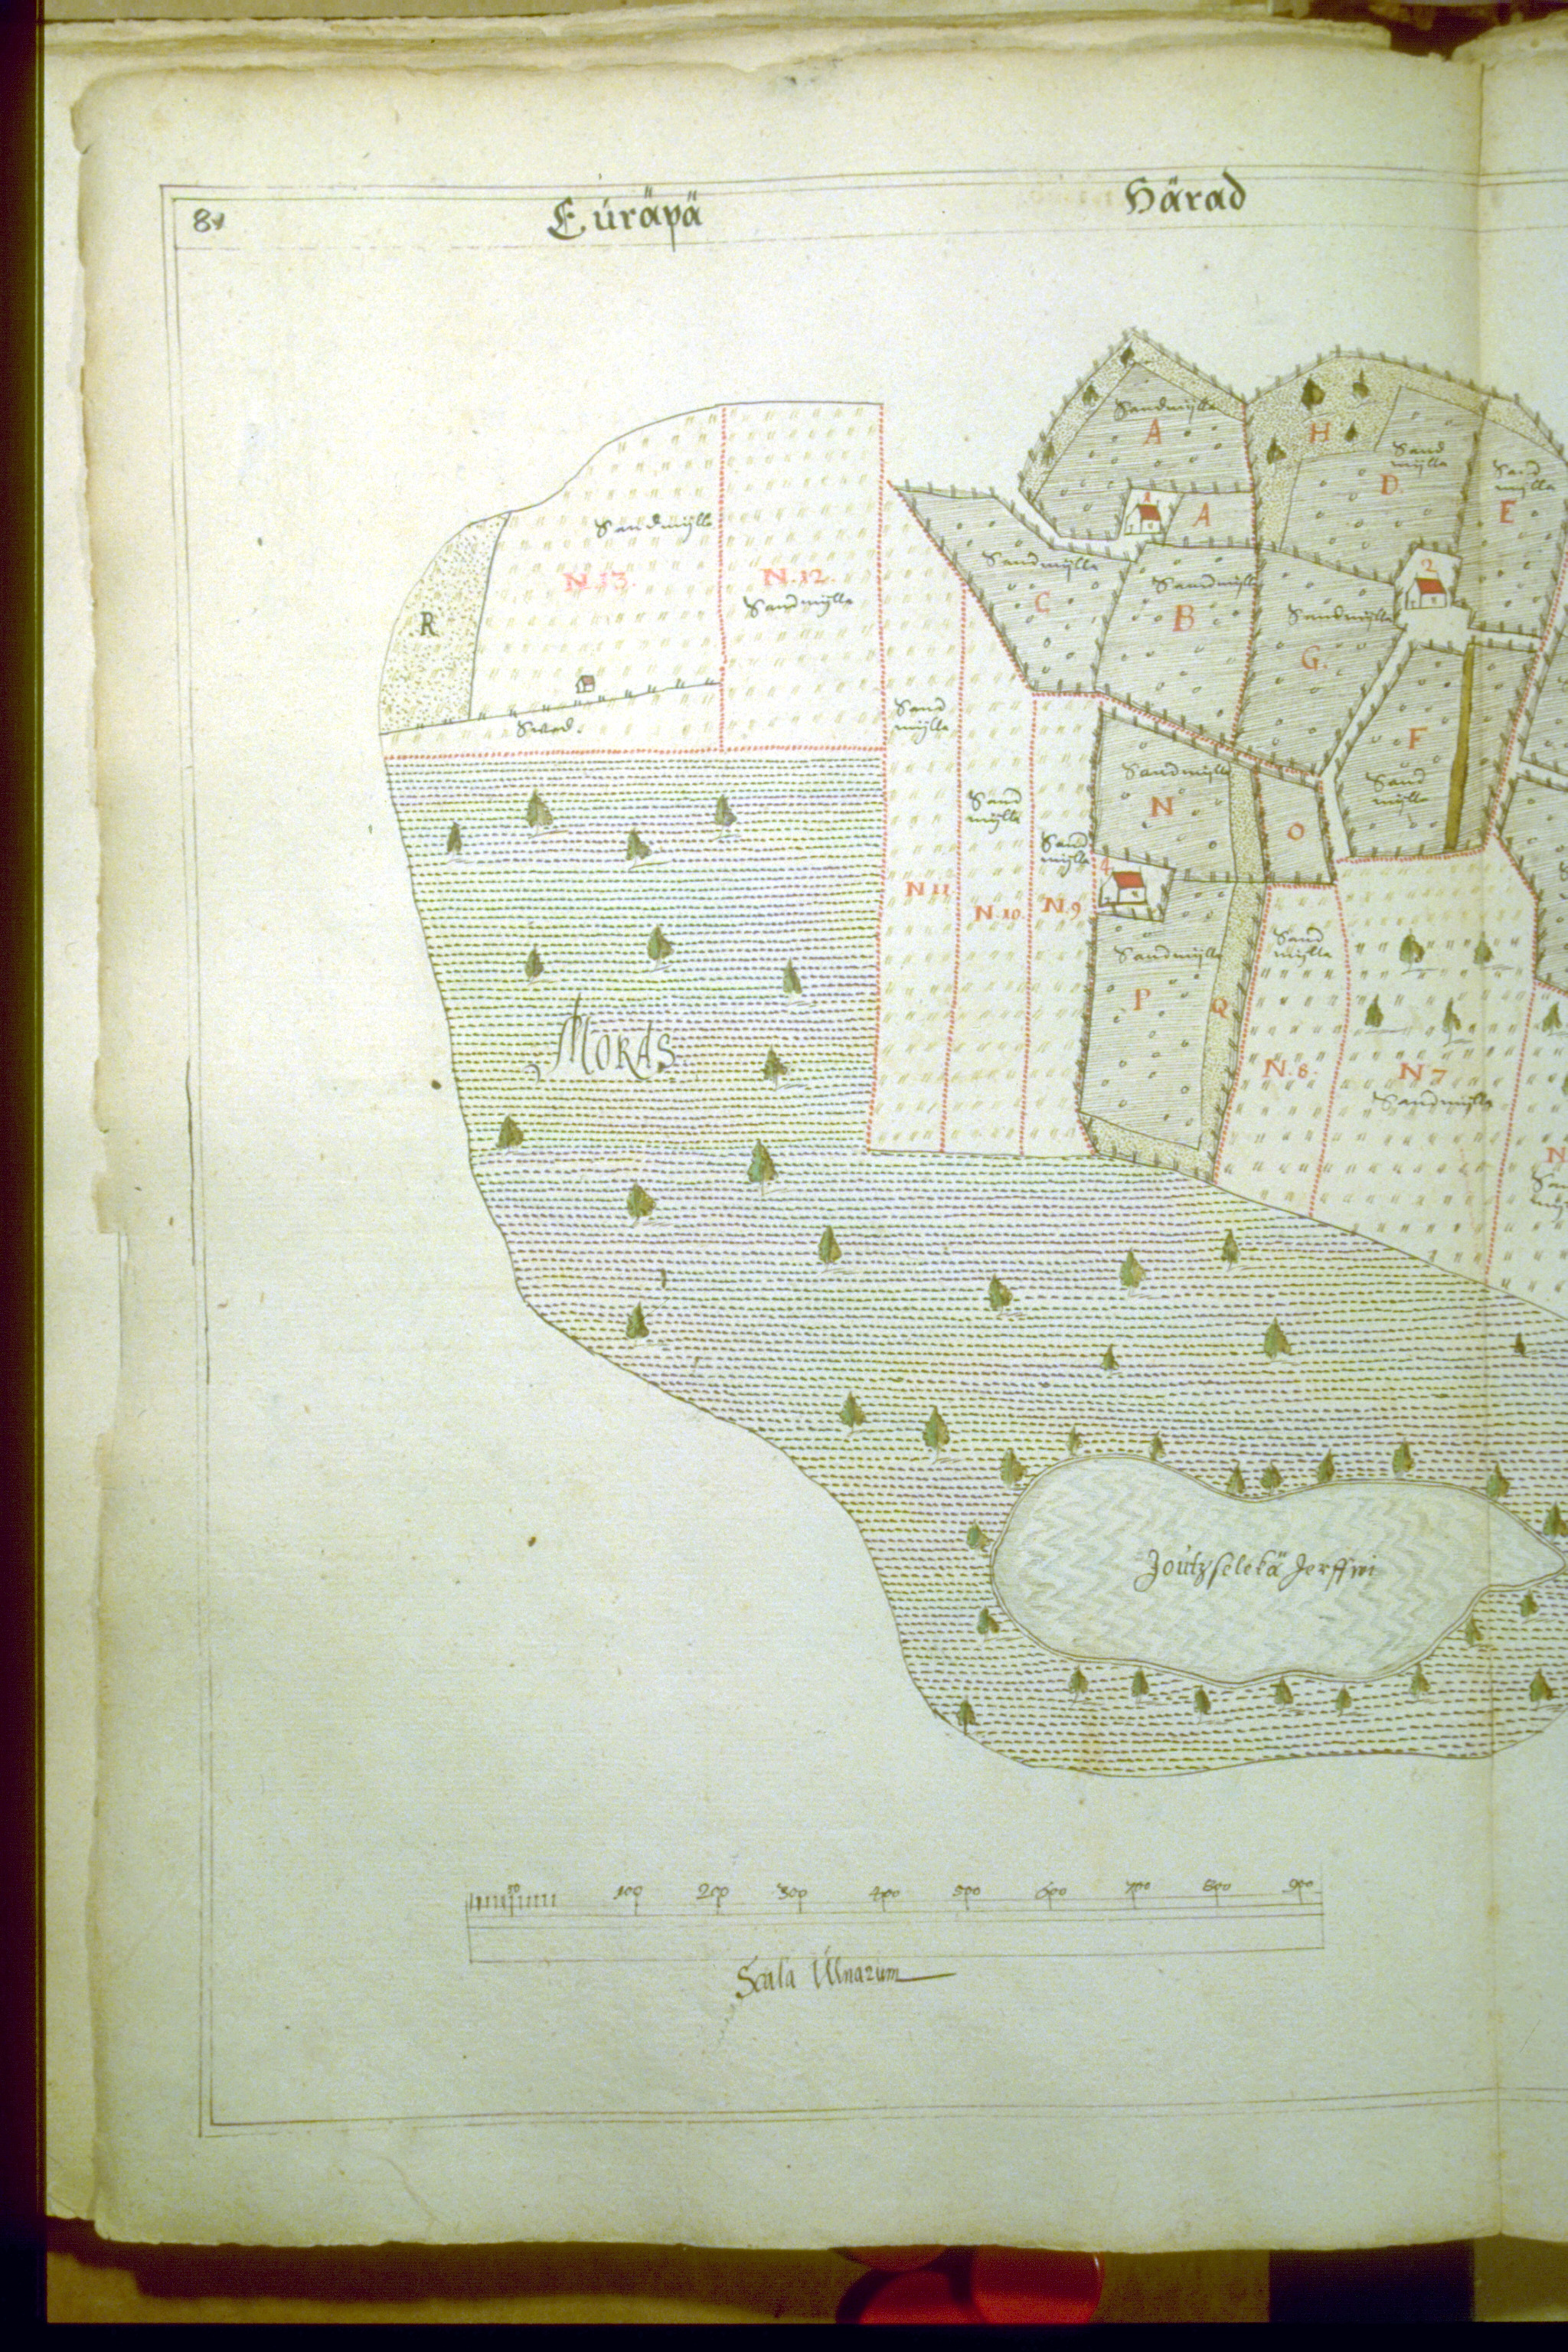 Eúräpä Härad
Sandmÿlla
A
H
Sand
mÿlla
D.
Sand
mÿlla
E
1
A
Sandmÿlla
N.13.
N.12.
Sandmÿlla
R
Sandmÿlla
C
Sandmÿlla
B
2
Sandmÿlla
G.
Swed.
Sand
mÿlla
F
Sand
mÿlla
Sandmÿlla
N
O
Sand
mÿlla
Sand
mÿlla
4
N 11
N.10.
N.9
Sandmÿlla
P
Q
Sand
mÿlla
N.8.
N 7
Sandmÿlla
N
MORAS
Joútzselekä Jerffwi
50 100 200 300 400 500 600 700 800 900
Scala Ulnarum